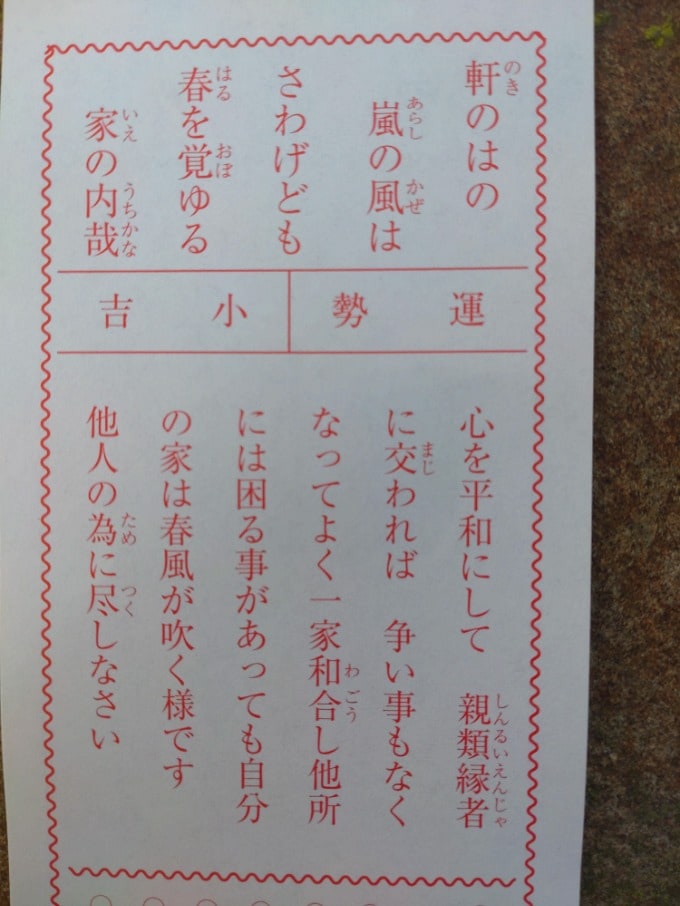 軒のはの
嵐の風は
さわげども
春を覚ゆる
家の内哉
運勢
小吉
心を平和にして 親類縁者
に交われば 争い事もなく
なってよく一家和合し他所
には困る事があっても自分
の家は春風が吹く様です
他人の為に尽しなさい